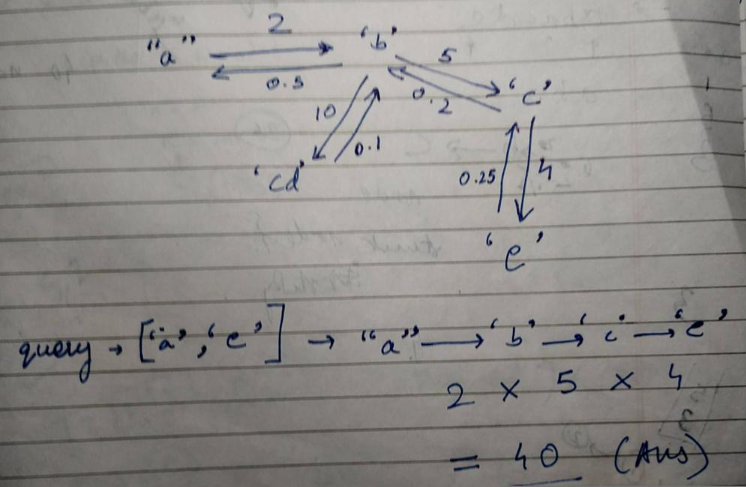 2
"a" 'b'
0.5 5
0.2 'c'
10 0.1
'cd' 0.25 4
'e'
query → ['a', 'e'] → "a" → 'b' → 'c' → 'e'
2 × 5 × 4
= 40 (Ans)